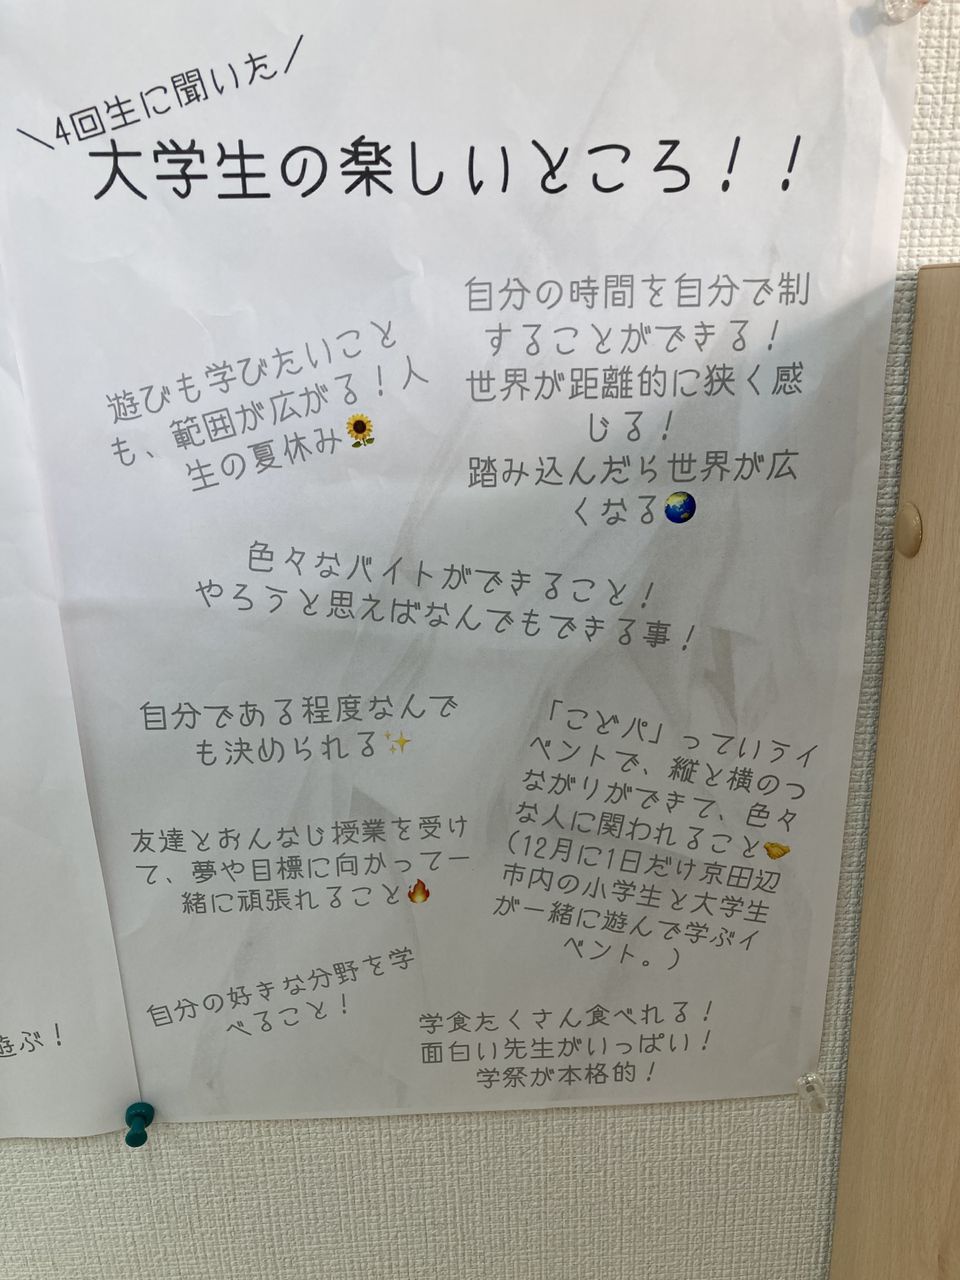 \4回生に聞いた/
大学生の楽しいところ！！
遊びも学びたいこと
も、範囲が広がる！人
生の夏休み🌻
自分の時間を自分で制
することができる！
世界が距離的に狭く感
じる！
踏み込んだら世界が広
くなる🌏
色々なバイトができること！
やろうと思えばなんでもできる事！
自分である程度なんで
も決められる✨
「こどパ」っていうイ
ベントで、縦と横のつ
ながりができて、色々
な人に関われること🤝
(12月に1日だけ京田辺
市内の小学生と大学生
が一緒に遊んで学ぶイ
ベント。)
友達とおんなじ授業を受け
て、夢や目標に向かって一
緒に頑張れること🔥
自分の好きな分野を学
べること！
学食たくさん食べれる！
面白い先生がいっぱい！
学祭が本格的！
遊ぶ！